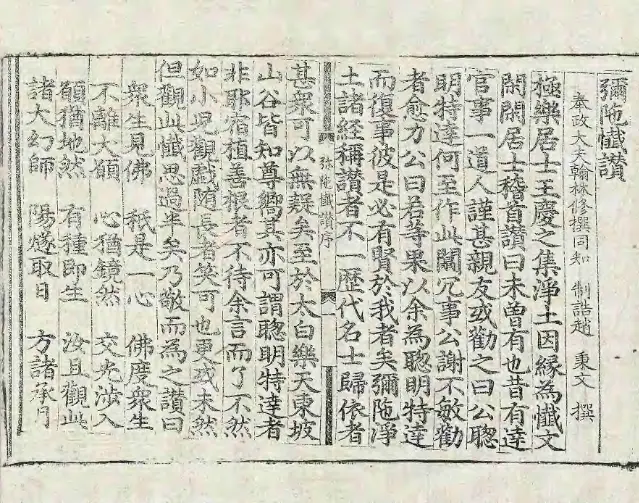 彌陁懺讃
奉政大夫翰林修撰同知 制誥趙 秉文 撰
極樂居士王慶之集淨土因緣為懺文
閑閑居士稽首讃曰未曽有也昔有達
官事一道人謹甚親友或勸之曰公聦
明特達何至作此闒冗事公謝不敏勸
者愈力公曰若等果以余為聦明特達
而復事彼是必有賢於我者矣彌陁淨
土諸經稱讃者不一歷代名士歸依者
弥陁懺讃序
甚衆可以無疑矣至於太白樂天東坡
山谷皆知尊嚮其亦可謂聦明特達者
非耶宿植善根者不待余言而了不然
如小兒觀戲隨長者笑可也更或未然
但觀此懺思過半矣乃敬而為之讃曰
衆生見佛 秖是一心 佛度衆生
不離大願 心猶鏡然 交光涉入
願猶地然 有種即生 汝且觀此
諸大幻師 陽燧取日 方諸承月